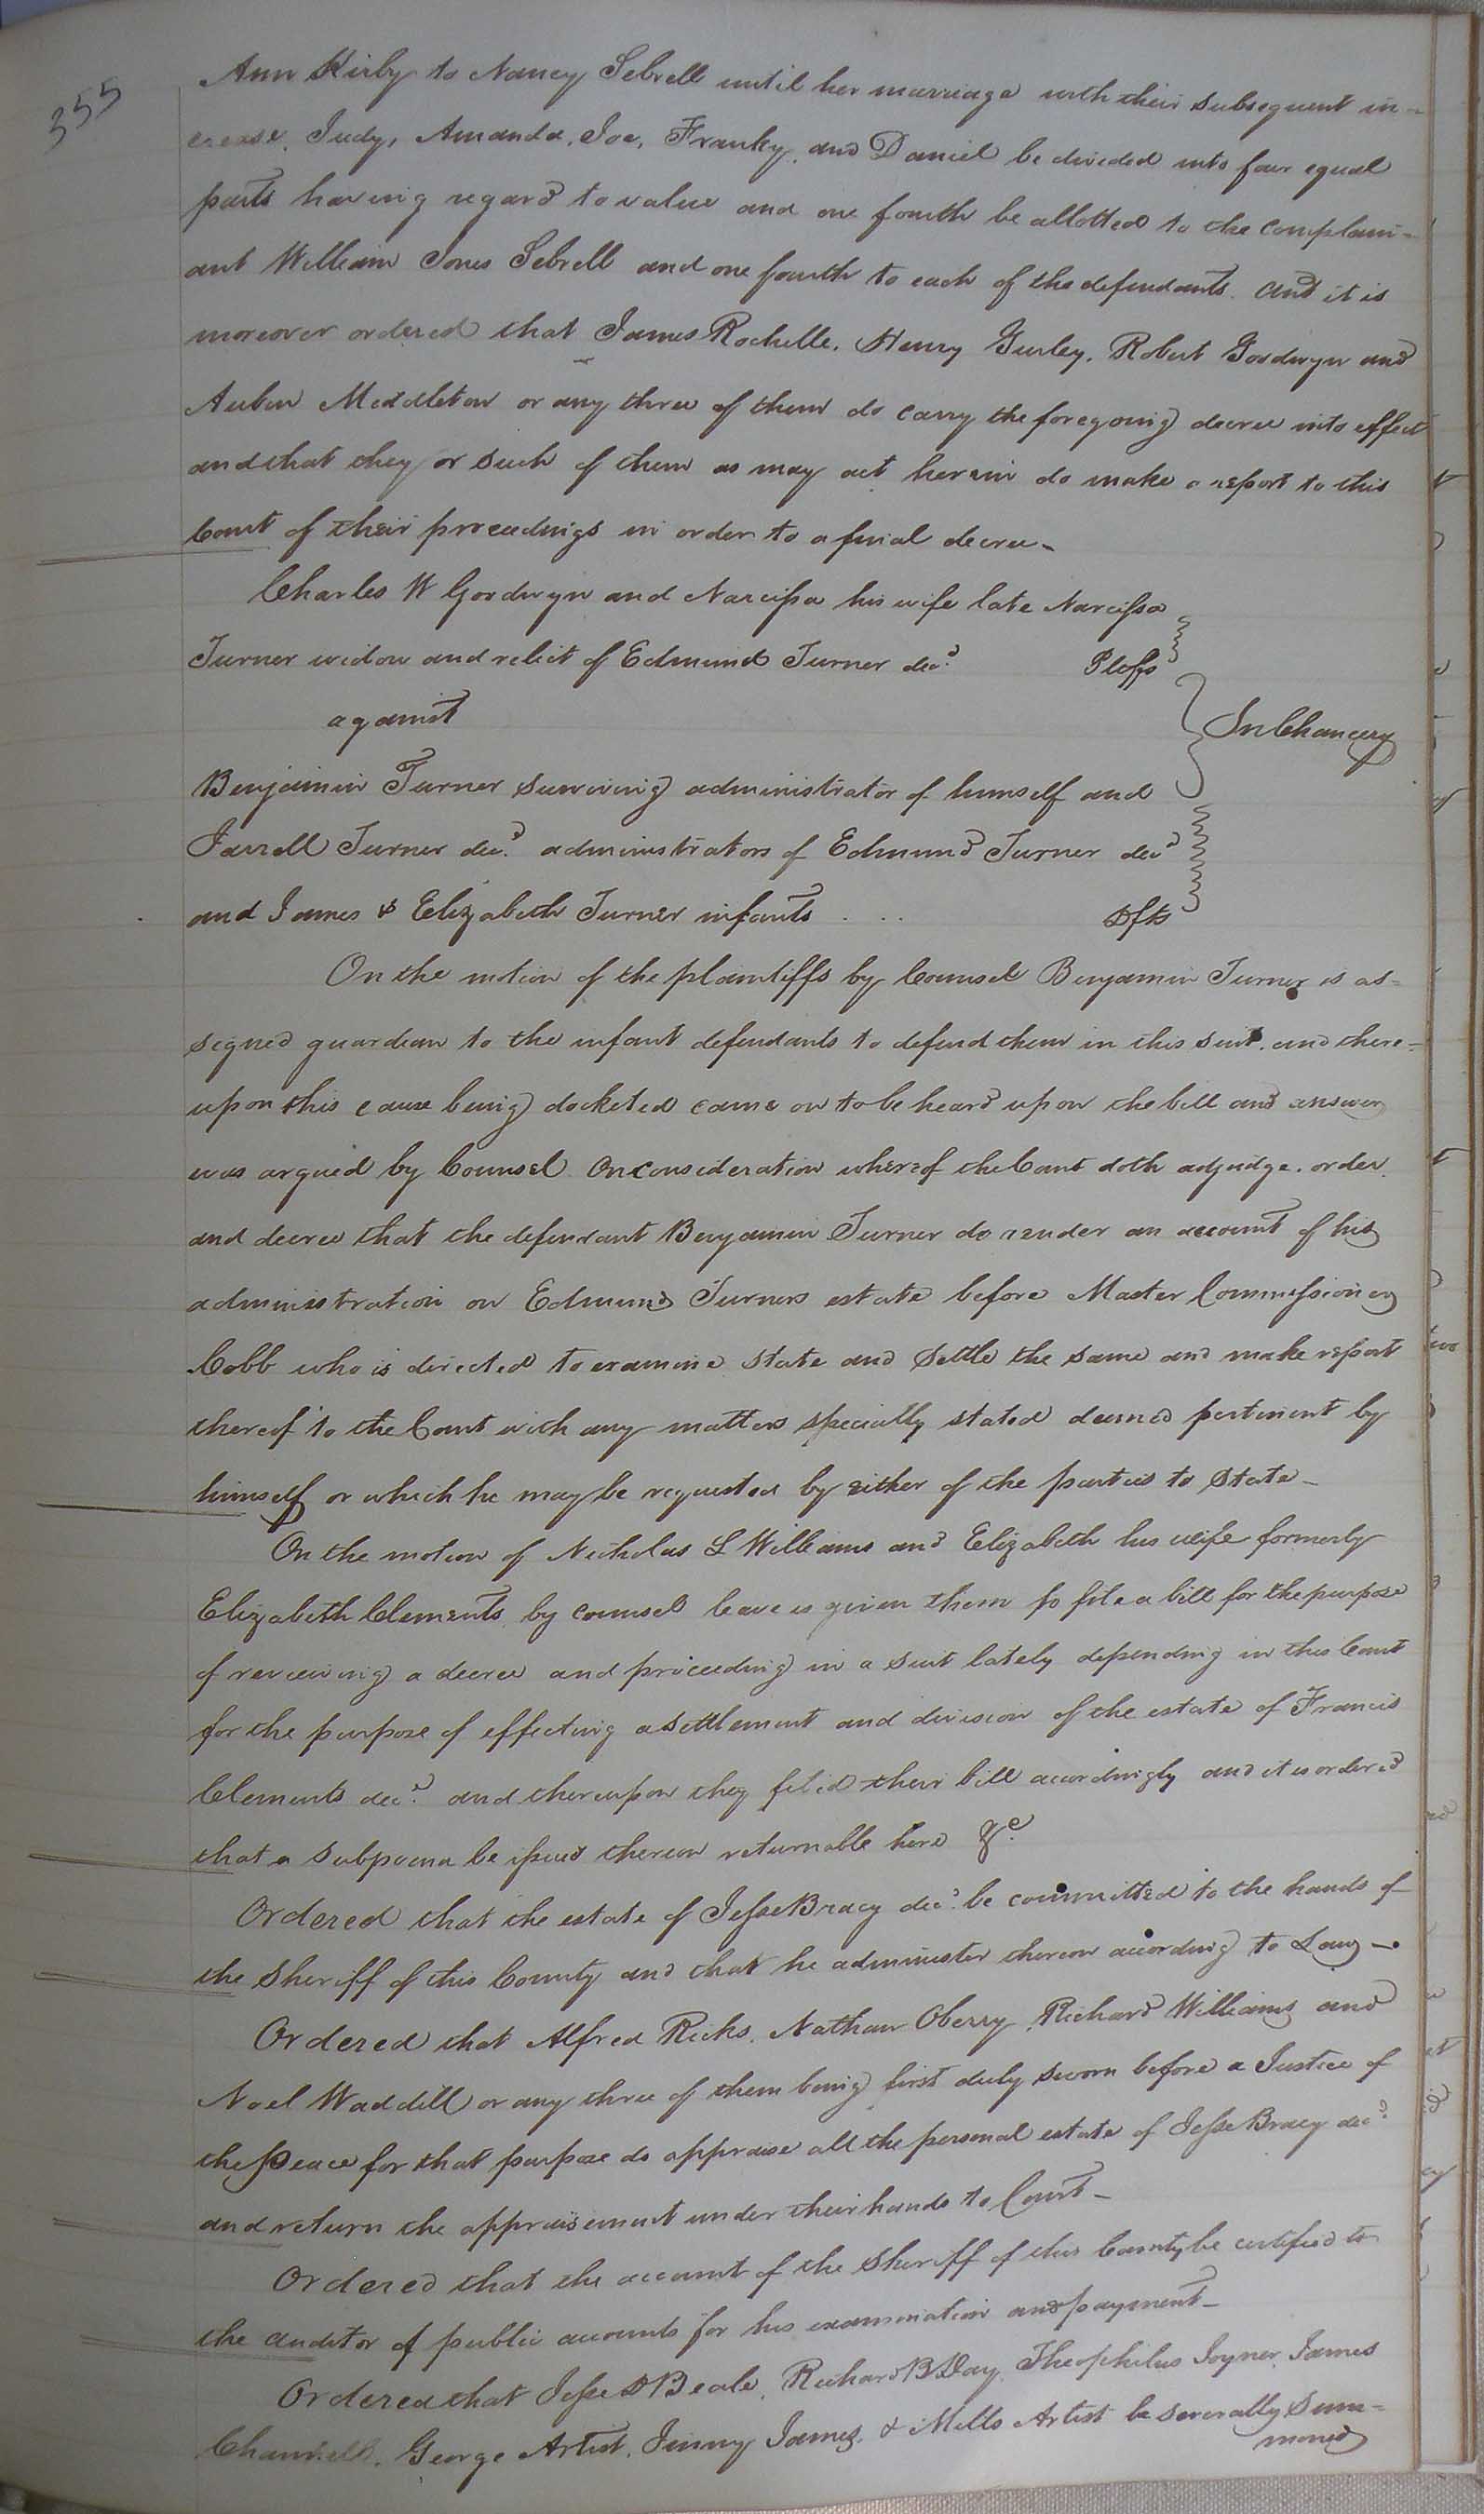 355
Ann Kirby to Nancy Sebrell until her marriage with their subsequent in-
crease, Judy, Amanda, Joe, Franky, and Daniel be divided into four equal
parts having regard to value and one fourth be allotted to the complain-
ant William Jones Sebrell and one fourth to each of the defendants. And it is
moreover ordered that James Rochelle, Henry Gurley, Robert Goodwyn and
Middleton or any three of them do carry the foregoing decree into effect
and that they or such of them as may act herein do make a report to this
Court of their proceedings in order to a final decree-
Charles W Goodwyn and Narcissa his wife late Narcissa
Turner widow and relict of Edmund Turner decd. Pltffs
against
In Chancery
Benjamin Turner surviving administrator of himself and
Jarrell Turner decd. administrators of Edmund Turner decd
and James & Elizabeth Turner infants . . . Dfts
On the motion of the plaintiffs by Counsel Benjamin Turner is as-
signed guardian to the infant defendants to defend them in this suit. and there-
upon this cause being docketed came on to be heard upon the bill and answer
was argued by Counsel On consideration whereof the Court doth adjudge. order
and decree that the defendant Benjamin Turner do render an account of his
administration on Edmund Turners estate before Master Commissioner
Cobb who is directed to examine state and settle the same and make report
thereof to the Court with any matters specially stated deemed pertinent by
himself or which he may be requested by either of the parties to state-
On the motion of Nicholas L Williams and Elizabeth his wife formerly
Elizabeth Clements by counsel leave is given them to file a bill for the purpose
of reviewing a decree and proceeding in a suit lately depending in this Court
for the purpose of effecting a settlement and division of the estate of Francis
Clements decd. and thereupon they filed their bill accordingly and it is ordered
that a subpoena be issued thereon returnable here &c.
Ordered that the estate of Jesse Bracy decd. be committed to the hands of
the Sheriff of this County and that he administer thereon according to Law-
Ordered that Alfred Ricks, Nathan Oberry, Richard Williams and
Noel Waddill or any three of them being first duly sworn before a Justice of
the Peace for that purpose do appraise all the personal estate of Jesse Bracy decd.
and return the appraisement under their hands to Court-
Ordered that the account of the Sheriff of this County be certified to
the auditor of public accounts for his examination and payment-
Ordered that Jesse D Beale, Richard B Day, Theophilus Joyner, James
George Artist, Jinny James, & Mills Artist be severally sum-
moned